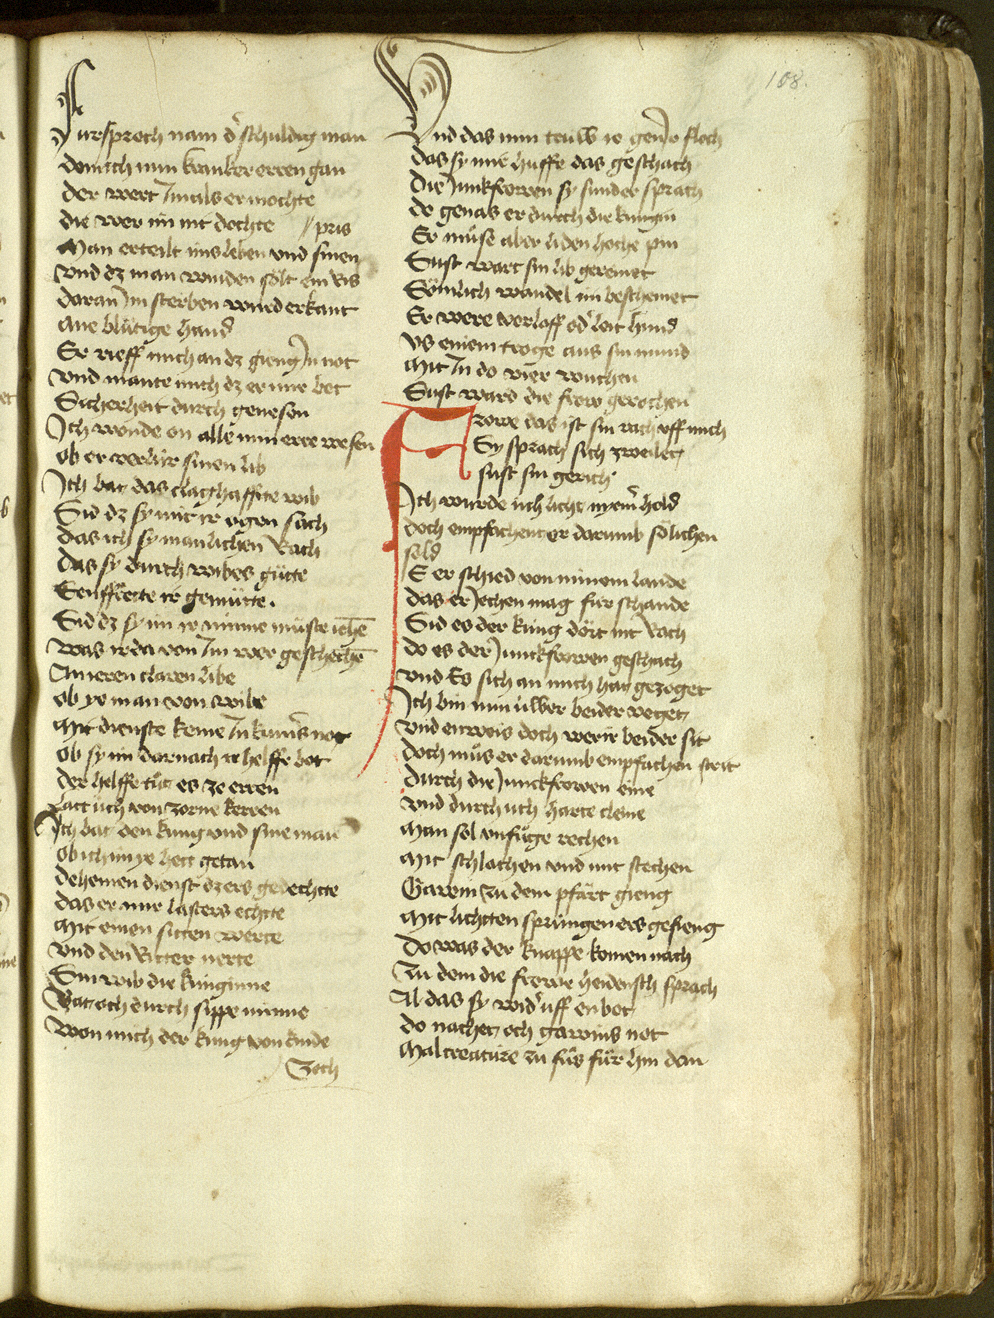 108.
Fursprech nam dˢ schuldig man
don ich nun kranker eren gan
der wert Inals er mochte
die wer im nit dochte // pris
Man erteilt ims leben vnd sinen
vnd dz man winden solt ein Ris
daran Im sterben wurd erkant
ane blůtige hand
Er rieff mich an dz gieng In not
vnd mante mich dz er mir bet
Sicherheit durch genesen
Ich wonde on alle min ere wesen
ob er verlur sinen lib
Ich bat das claghaffte wib
Sid dz sy mit ir ogen sach
das ich sy manlichen Rach
das sy durch wibes gůtte
Senfftette ir gemůtte.
Sid dz sy im ir minne můste iehē
was ir da von Im wer geschechē
An ieren claren libe
ob ye man von wibe
Mit dienste keme In kumˢs not
ob sy im darnach ir helffe bot
der helffe tůt es ze erren
Latt üch von zorne kerren
Ich bat den kung vnd sine man
ob ich im ye hett getan
deheinen dienst dz ers gedechtte
das er mir lasters echtte
Mit einen sitten werte
vnd den Ritter nerte
Sin wib die kunginne
Bat och durch sippe minne
won mich der kung von kinde
Zoch
Vnd das min truw ie gen Ir floch
das sy mir huffe das geschach
die Junkfrowen sy sunder sprach
do genas er durch die kungin
Er můse aber liden hoche pin
Sust wart sin lib gereinet
Sömlich wandel im bescheinet
Er were verloff odˢ leit hund
vs einem troge aus sin mund
Mit In do vier wuchen
Sust ward die frow gerochen
Frowe das ist sin rach vff mich
Sy sprach sich zweilet
sust sin gerich
Ich wurde üch licht nyemˢ hold
doch empfachent er darumb sölichen
sold
E er schied von minem lande
das er Jechen mag für schande
Sid es der kung dört nit Rach
do es der Junckfrowen geschach
vnd Es sich an mich hat gezoget
Ich bin nun üwer beider voget
vnd enweis doch wer ir beider sit
doch můs er darumb empfachen strit
durch die Junckfrowen eine
vnd durch üch harte cleine
Man sol vnfůge rechen
Mit schlachen vnd mit stechen
Gawein zu dem pfärt gieng
Mit lichtten sprüngen ers gefieng
Do was der knappe komen nach
Zu dem die frowe heidensch sprach
Al das sy widˢ vff enbot
do nachet och gawins not
Malcreatüre zu fůs für hin dan